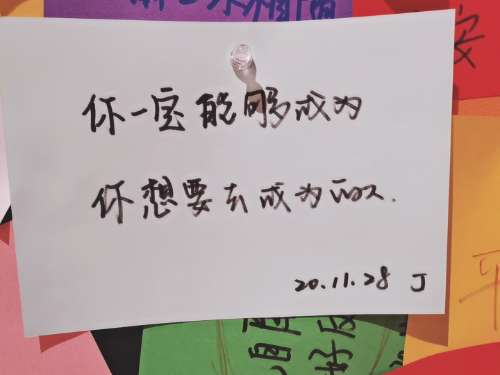 你一定能够成为
你想要去成为的人.
20.11.28 J
安
平